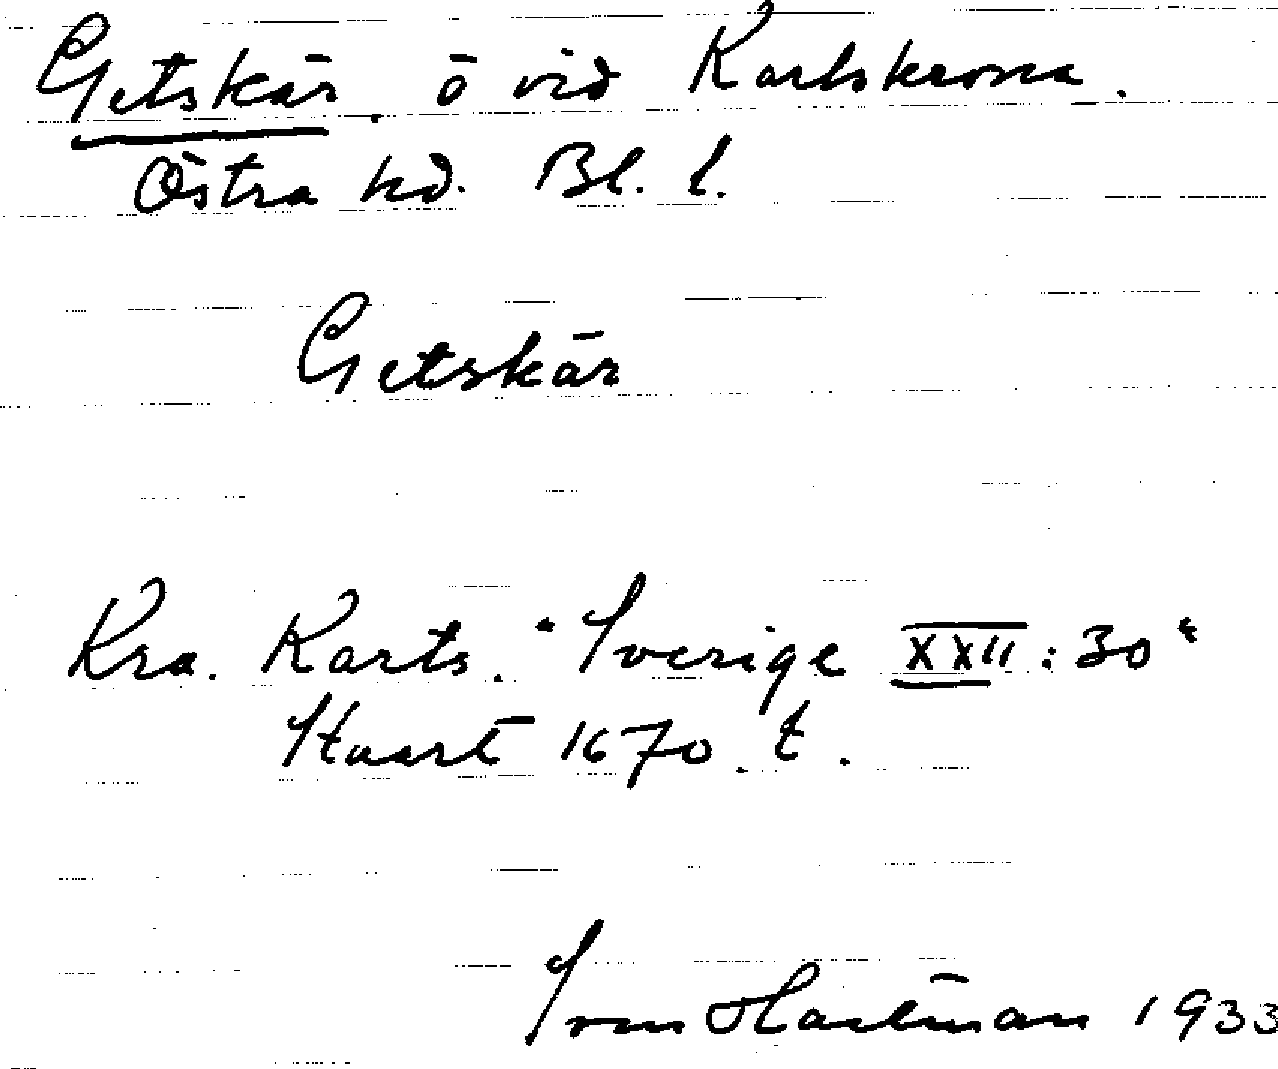 Getskär. ö vid Karlskrona.
Östra hd. Bl. l.
Getskär
Kra. Karts. "Sverige XXII:30"
Stuart 1670. t.
Sven Hartman 1933